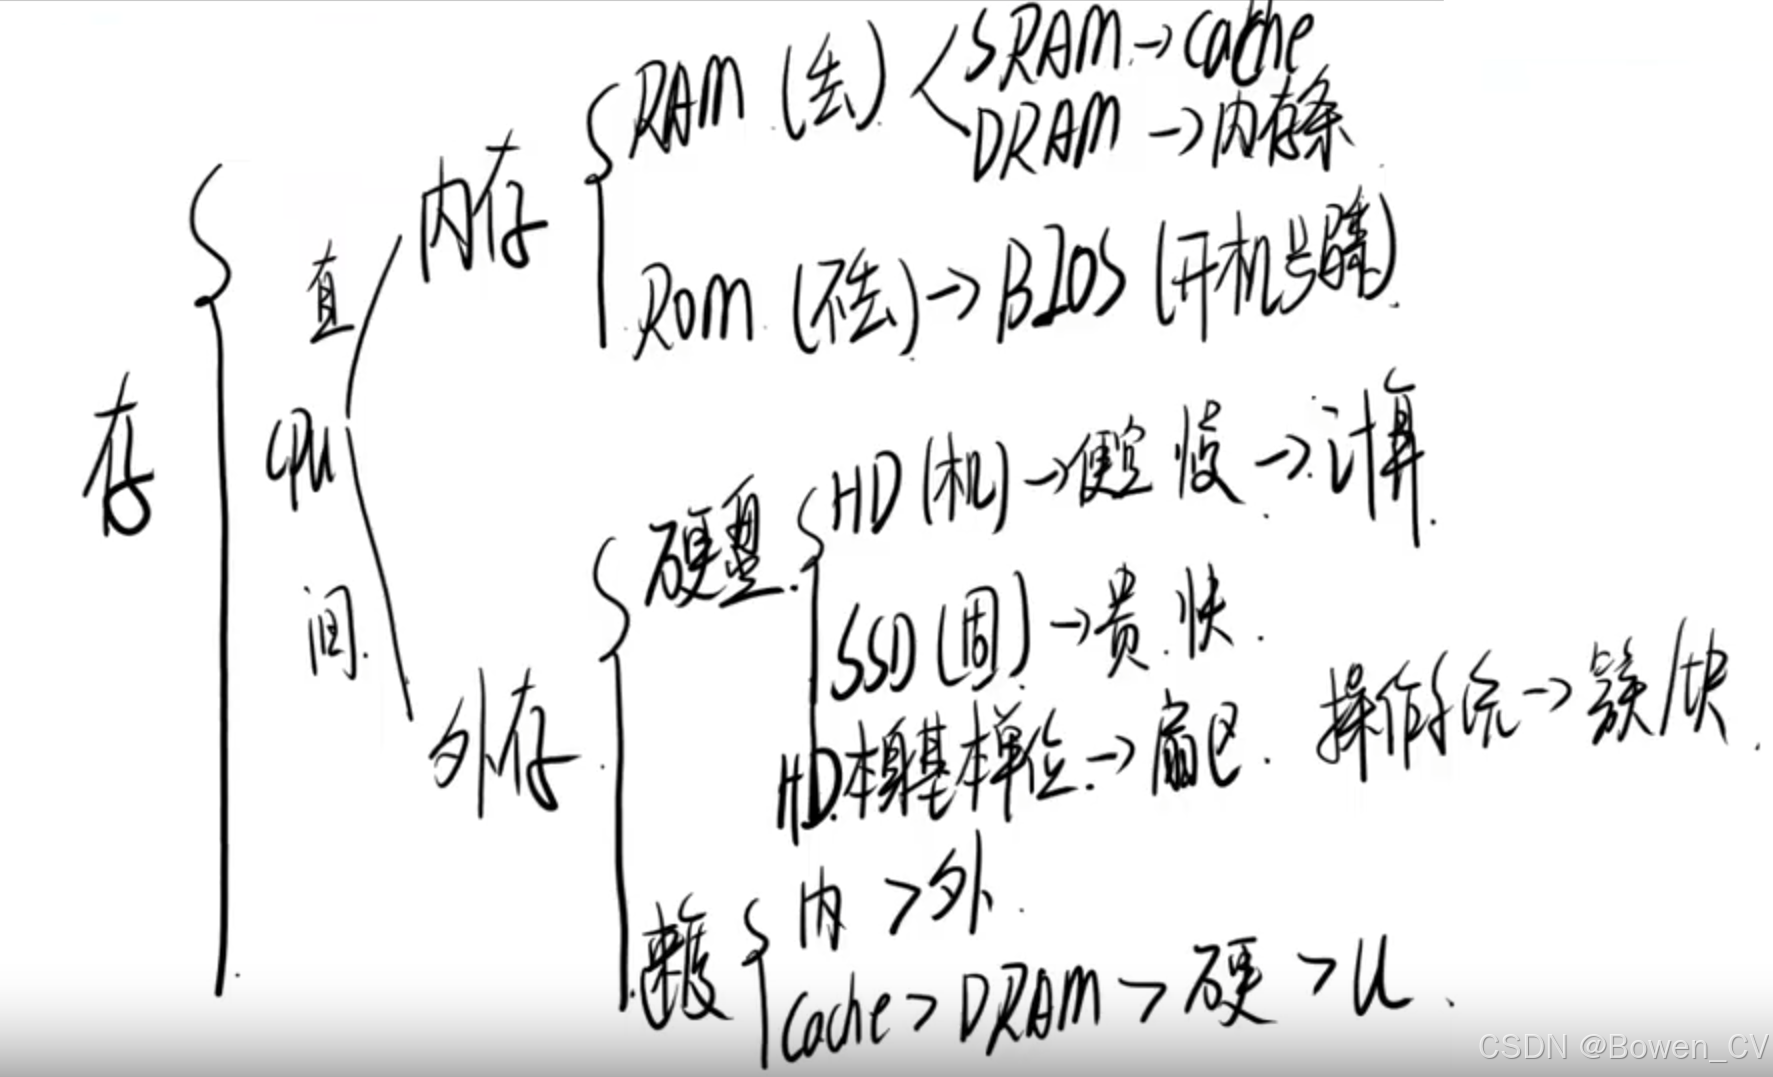 存
直
CPU
间.
内存
RAM (丢) SRAM → Cache
DRAM → 内存条
ROM (不丢) → BIOS (开机步骤)
外存
硬盘 HD (机) → 便宜 慢 → 计算
SSD (固) → 贵 快.
HD本身基本单位 → 扇区. 操作系统 → 簇/块.
速度 内 > 外.
Cache > DRAM > 硬 > U.
CSDN @Bowen_CV